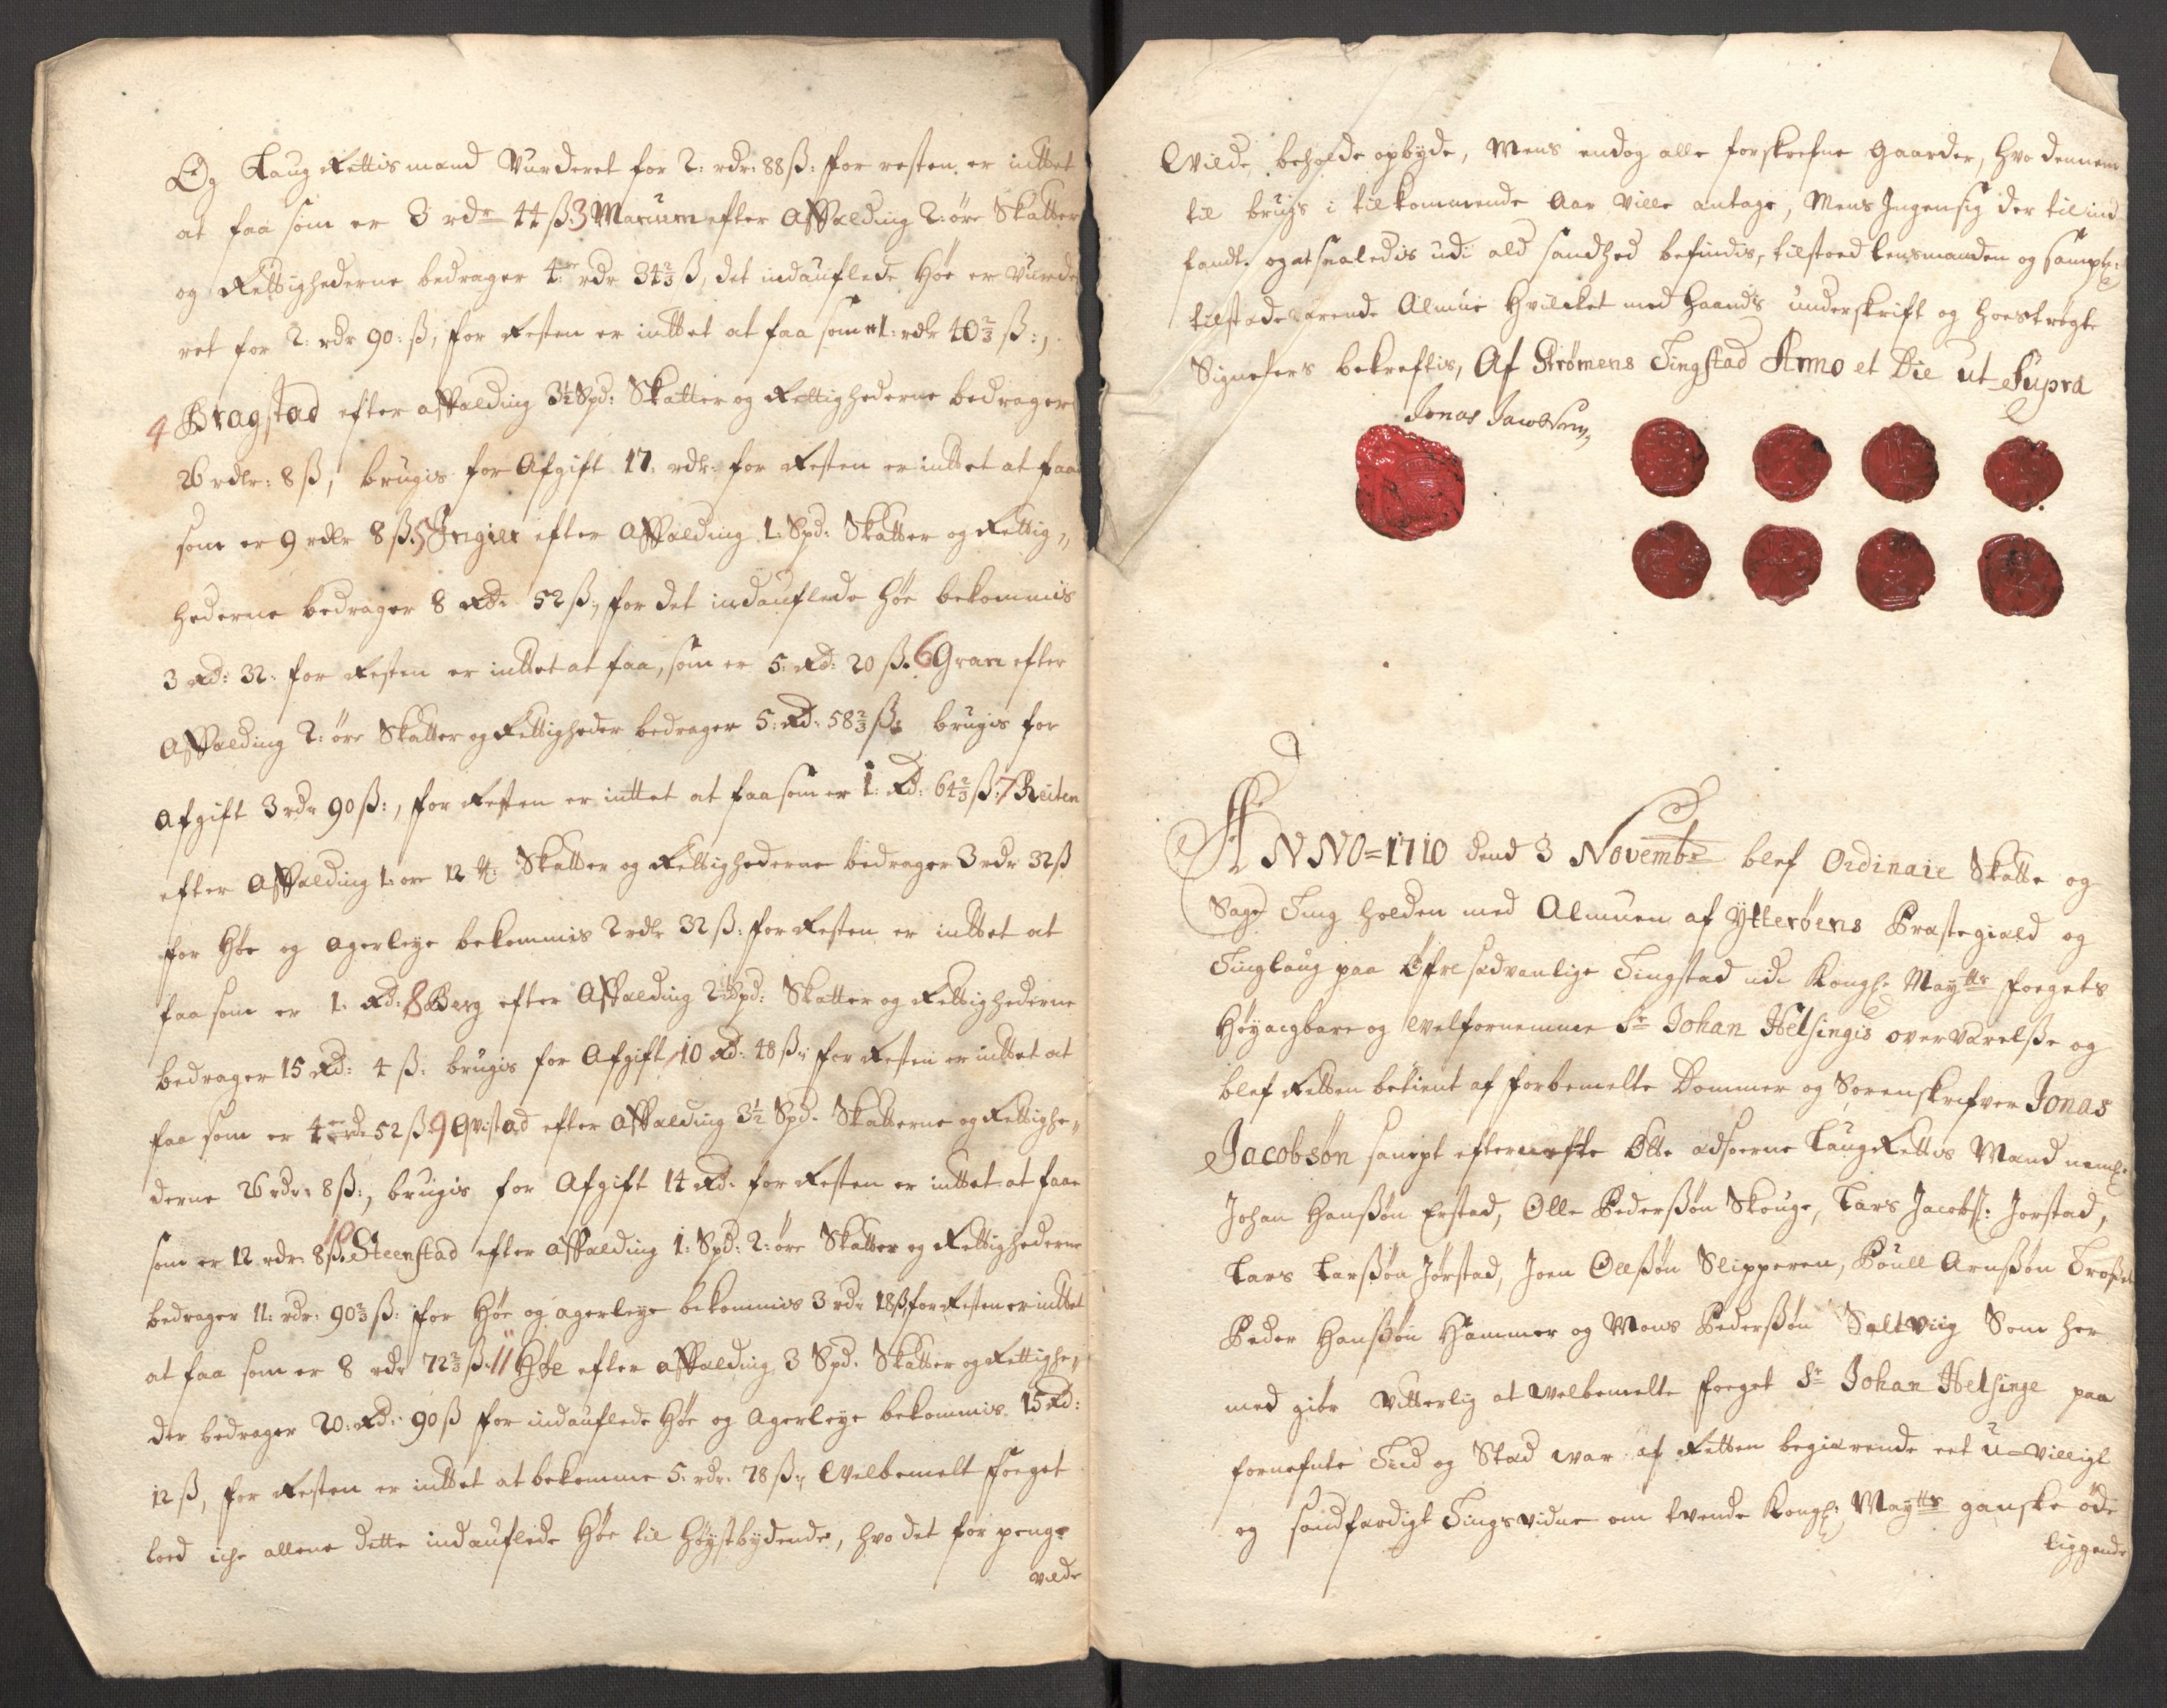 Og Laug Rettismand Vurderet for 2: rdr: 88 ß: for resten er inttet
at faa som er 3 rdr 44 ß. 3 Marium efter Affælding 2: öre Skatter
og Rettighederne bedrager 4: rdr 34 2/3 ß, det indauflede Höe er Vurde
ret for 2: rdr 90: ß, for Resten er inttet at faa som er 1: rdr 40 2/3 ß:,
4 Bragstad efter affælding 3 1/2 Spd: Skatter og Rettighederne bedrager
26 rdlr: 8 ß, brugis for Afgift 17: rdr: for Resten er inttet at faa
som er 9 rdlr 8 ß. 5 Ingier efter Affælding 1: Spd: Skatter og Rettig„
hederne bedrager 8 Rd: 52 ß:, for det indauflede höe bekommis
3 Rd: 32: for Resten er inttet at faa, som er 5: Rd: 20 ß. 6 Gran efter
Affælding 2: öre Skatter og Rettigheder bedrager 5: Rd: 58 2/3 ß: brugis for
Afgift 3 rdr 90 ß:, for Resten er inttet at faa som er 1: Rd: 64 2/3 ß: 7 Reiten
efter Affælding 1: ore 12 Skatter og Rettighederne bedrager 3 rdr 32 ß
for Höe og agerleye bekommis 2 rdr 32 ß: for Resten er inttet at
faa som er 1: Rd: 8 Berg efter Affælding 2 Spd: Skatter og Rettighederne
bedrager 15 Rd: 4 ß: brugis for Afgift 10 Rd: 48 ß:, for Resten er inttet at
faa som er 4 rdr 52 ß. 9 Qvistad efter Affælding 3 1/2 Spd. Skatterne og Rettighe„
derne 26 rdr: 8 ß:, brugis for Afgift 14 Rd: for Resten er inttet at faa
som er 12 rdr: 8 ß. 10 Steenstad efter affælding 1: Spd: 2: öre Skatter og Rettighederne
bedrager 11: rdr: 90 2/3 ß: for Höe og agerleye bekommis 3 rdr 18 ß for Resten er inttet
at faa som er 8 rdr 72 2/3 ß: 11 Höe efter affælding 3 Spd. Skatter og Rettighe„
der bedrager 20: Rd: 90 ß for indauflede Höe og Agerleye bekommis 15 Rd:
12 ß, for Resten er inttet at bekomme 5: rdr: 78 ß:, Welbemelt Foeget
loed iche allene dette indauflede Höe til Höystbydende, hvo det for penge
vilde
Wilde beholde opbyde, Mens endog alle forskrefne gaarder, hvo dennem
til brugs i tilkommende Aar ville antage, Mens Ingen sig der til ind
fandt. og at saaledis udi ald sandhed befindis, tilstoed Lensmanden og sampt:
tilstædeværende Almue Hvilcket med haands underskrift og hoeströgte
Signeters bekreftis, Af Strømens Tingstad Anno et Die ut Supra
Jonas Jacobsen
ANNO = 1710 dend 3 Novembr blef Ordinaie Skatte og
Sage Ting holden med Almuen af Ytterøens Præstegield og
Tinglaug paa Öfre sædvanlige Tingstad udi Kongl: Maytts Foegets
Höyacgbare og Welfornemme Sr Johan Helsingis overværelße og
blef Retten betient af forbemelte Dommer og Sorenskrifver Jonas
Jacobsön sampt efternefte Otte adsorne Laug Rettis Mænd neml:
Johan Hanßön Erstad, Olle Pederßön Skouge, Lars Jacobs: Jorstad,
Lars Larßön Jörstad, Joen Ollßön Slipperen, Poull Arnßön Troßet
Peder Hanßön Hammer og Mons Pederßön Saltviig Som her
med giör Vitterlig at Welbemelte Foeget Sr Johan Helsinge paa
fornefnte Tiid og Stæd war af Retten begierende eet u-villigt
og sandfærdigt Tingsvidne om tvende Kongl: Maytts ganske öde
liggende